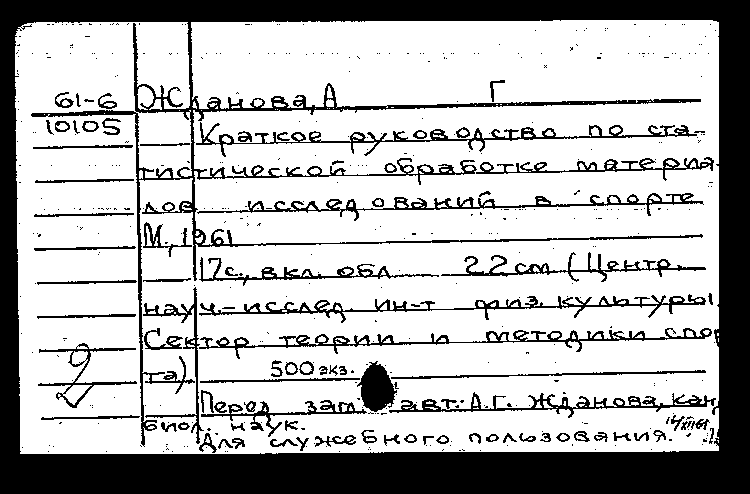 61-6 Жданова, А Г
10105 Краткое руководство по ста-
тистической обработке материа-
лов исследований в спорте
М., 1961
17с., вкл. обл 22 см (Центр.
науч.-исслед. ин-т физ. культуры.
Сектор теории и методики спор
та) 500 экз.
2
Перед загл. авт: А.Г. Жданова, кан
биол. наук.
Для служебного пользования.